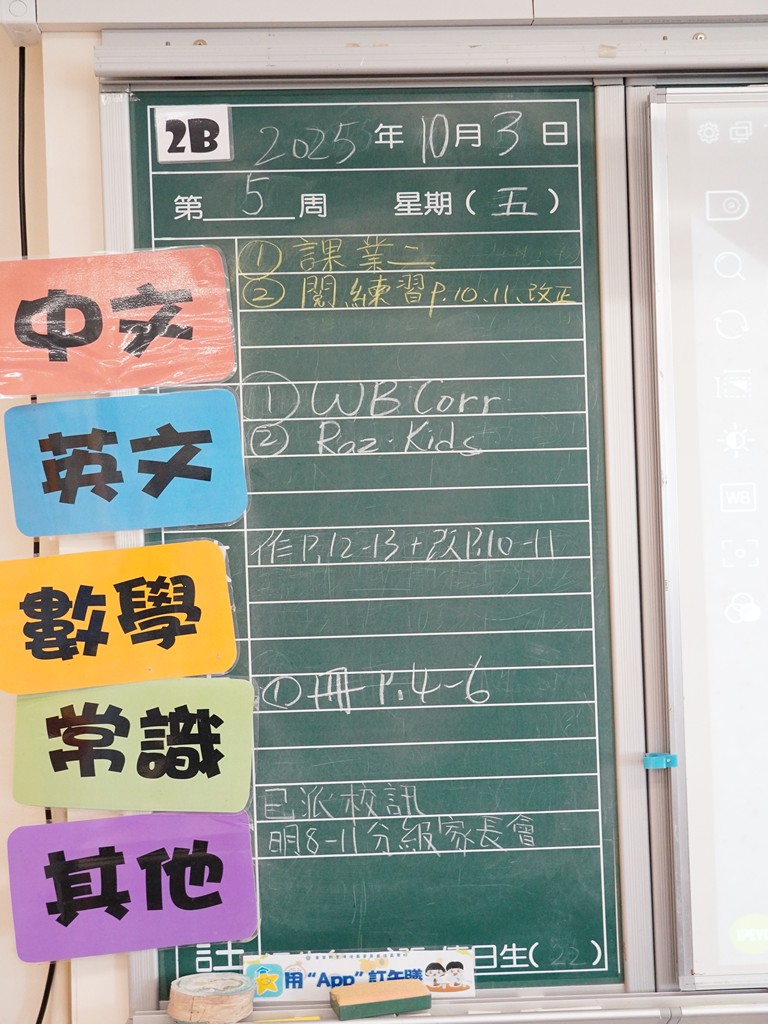 2B 2025年10月3日
第5周 星期(五)
中文
① 課業二
② 閱練習P.10、11、改正
英文
① WB Corr
② Raz-Kids
數學
作P.12-13+改P.10-11
常識
① 冊 P.4-6
其他
已派校訊
明8-11分級家長會
值日生(22)
用“App”訂午膳
WB